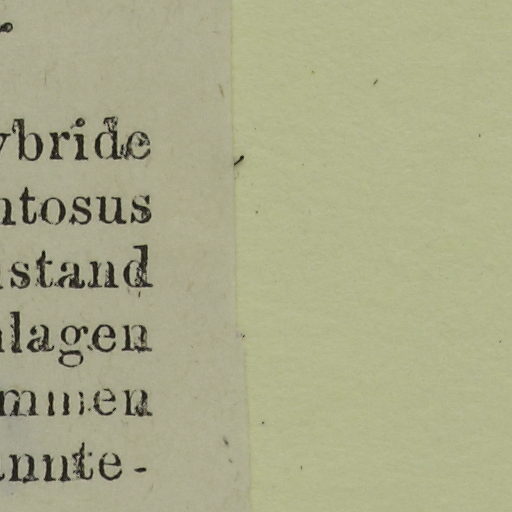 ybride
ntosus
stand
lagen
mmen
annte-